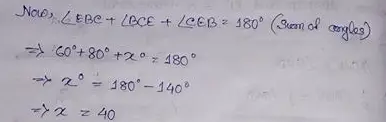 Now, ∠EBC + ∠BCE + ∠CEB = 180° (Sum of angles)
⇒ 60° + 80° + x° = 180°
⇒ x° = 180° - 140°
⇒ x = 40